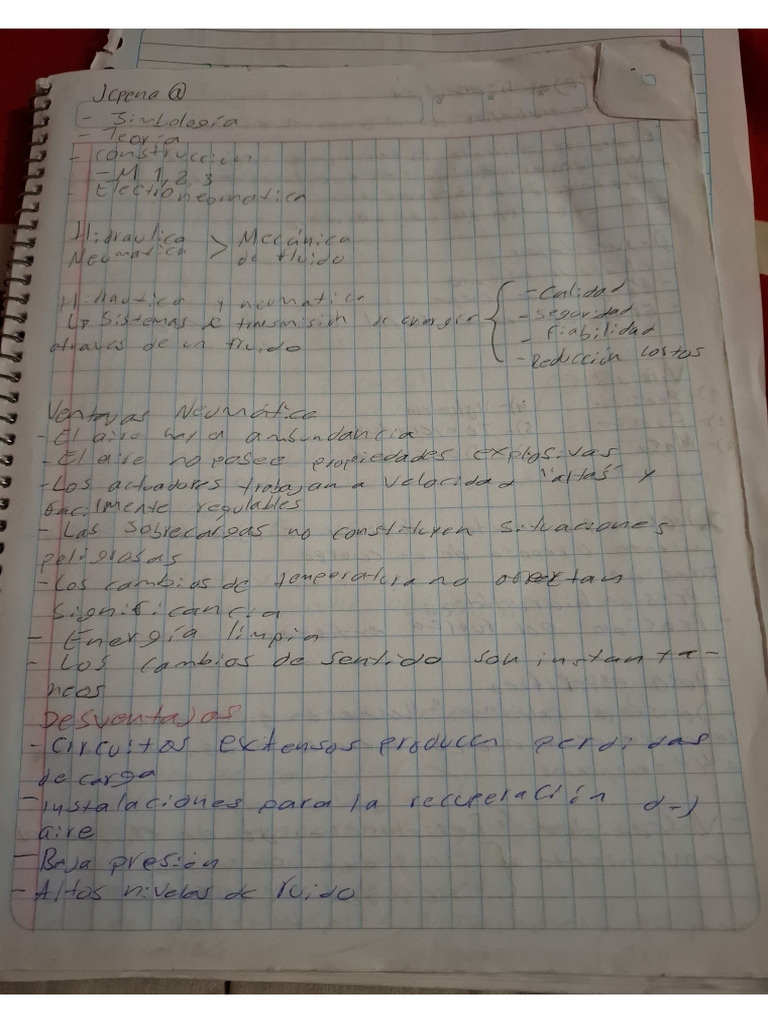 Jcpena@
- Simbología
- Teoría
- construcción
- M 1, 2, 3
- Electroneomatica
Hidraulica > Mecánica
Neumatica de fluido
Hidraulica y neumatica
Sistemas de transmisión de energia
atraves de un fluido
- Calidad
- seguridad
- Fiabilidad
- Reducción costos
Ventajas Neumática
- El aire hay a ambundancia
- El aire no posee propiedades explosivas
- Los actuadores trabajan a velocidad "altas" y
facilmente regulables
- Las sobrecargas no constituyen situaciones
peligrosas
- Los cambios de temperatura no afectan
significancia
- Energía limpia
- Los cambios de sentido son instanta-
neos
Desventajas
- Circuitos extensos producen perdidas
de carga
- instalaciones para la recuperación
aire
- Baja presión
- Altos niveles de ruido